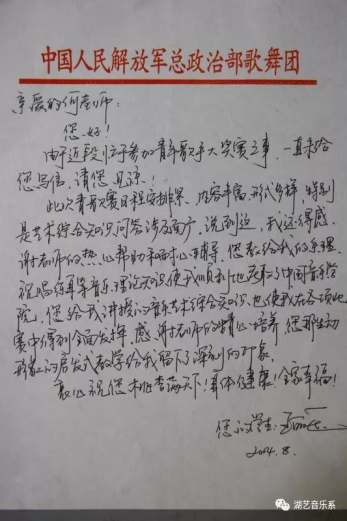 中国人民解放军总政治部歌舞团
亲爱的何老师：
您好！
由于近段忙于参加青年歌手大奖赛之事，一直未给
您写信，请您见谅！
此次青歌赛日程安排紧、内容丰富、形式多样，特别
是艺术综合知识问答涉及面广，说到这，我还得感
谢老师的热心帮助和耐心辅导，您教给我的乐理、
视唱练耳等音乐理论知识使我顺利地考取了中国音乐学
院，您给我讲授的音乐艺术综合知识，也使我在各项比
赛中得到全面发挥，感谢老师的精心培养，您那生动
形象的启发式教学给我留下了深刻的印象。
衷心祝您桃李满天下！身体健康！全家幸福！
您的学生：
2004.8.
湖艺音乐系